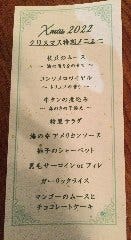 Xmas 2022
クリスマス特別メニュー
のムース
コンソメロワイヤル
〜トリュフの香り〜
牛タンの煮込み
特製サラダ
海の幸アメリケンソース
柚子のシャーベット
黒毛サーロイン or フィレ
ガーリックライス
マンゴーのムースと
チョコレートケーキ